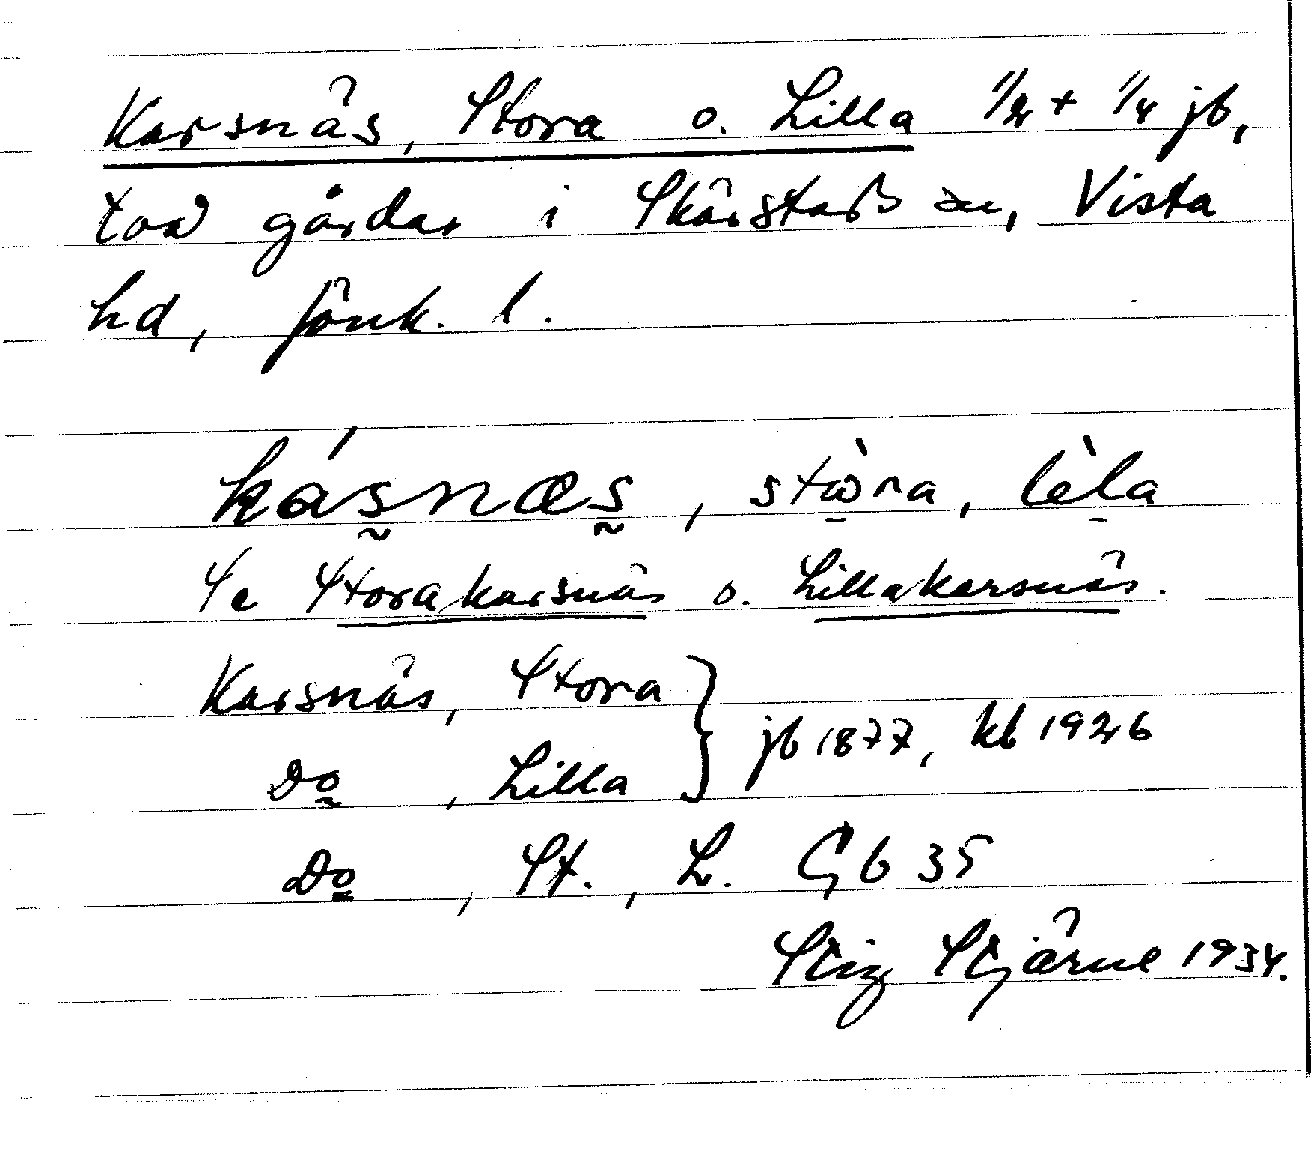 Karsnäs, Stora o. Lilla 1/2 + 1/4 jb,
två gårdar i Skärstads sn, Vista
hd, Jönk. l.
kásnæs, stòra, lèla
Se Storakarsnäs o. Lillakarsnäs.
Karsnäs, Stora } jb 1877, kb 1926
Do, Lilla
Do, St., L. Gb 35
Stig Stjärne 1934.